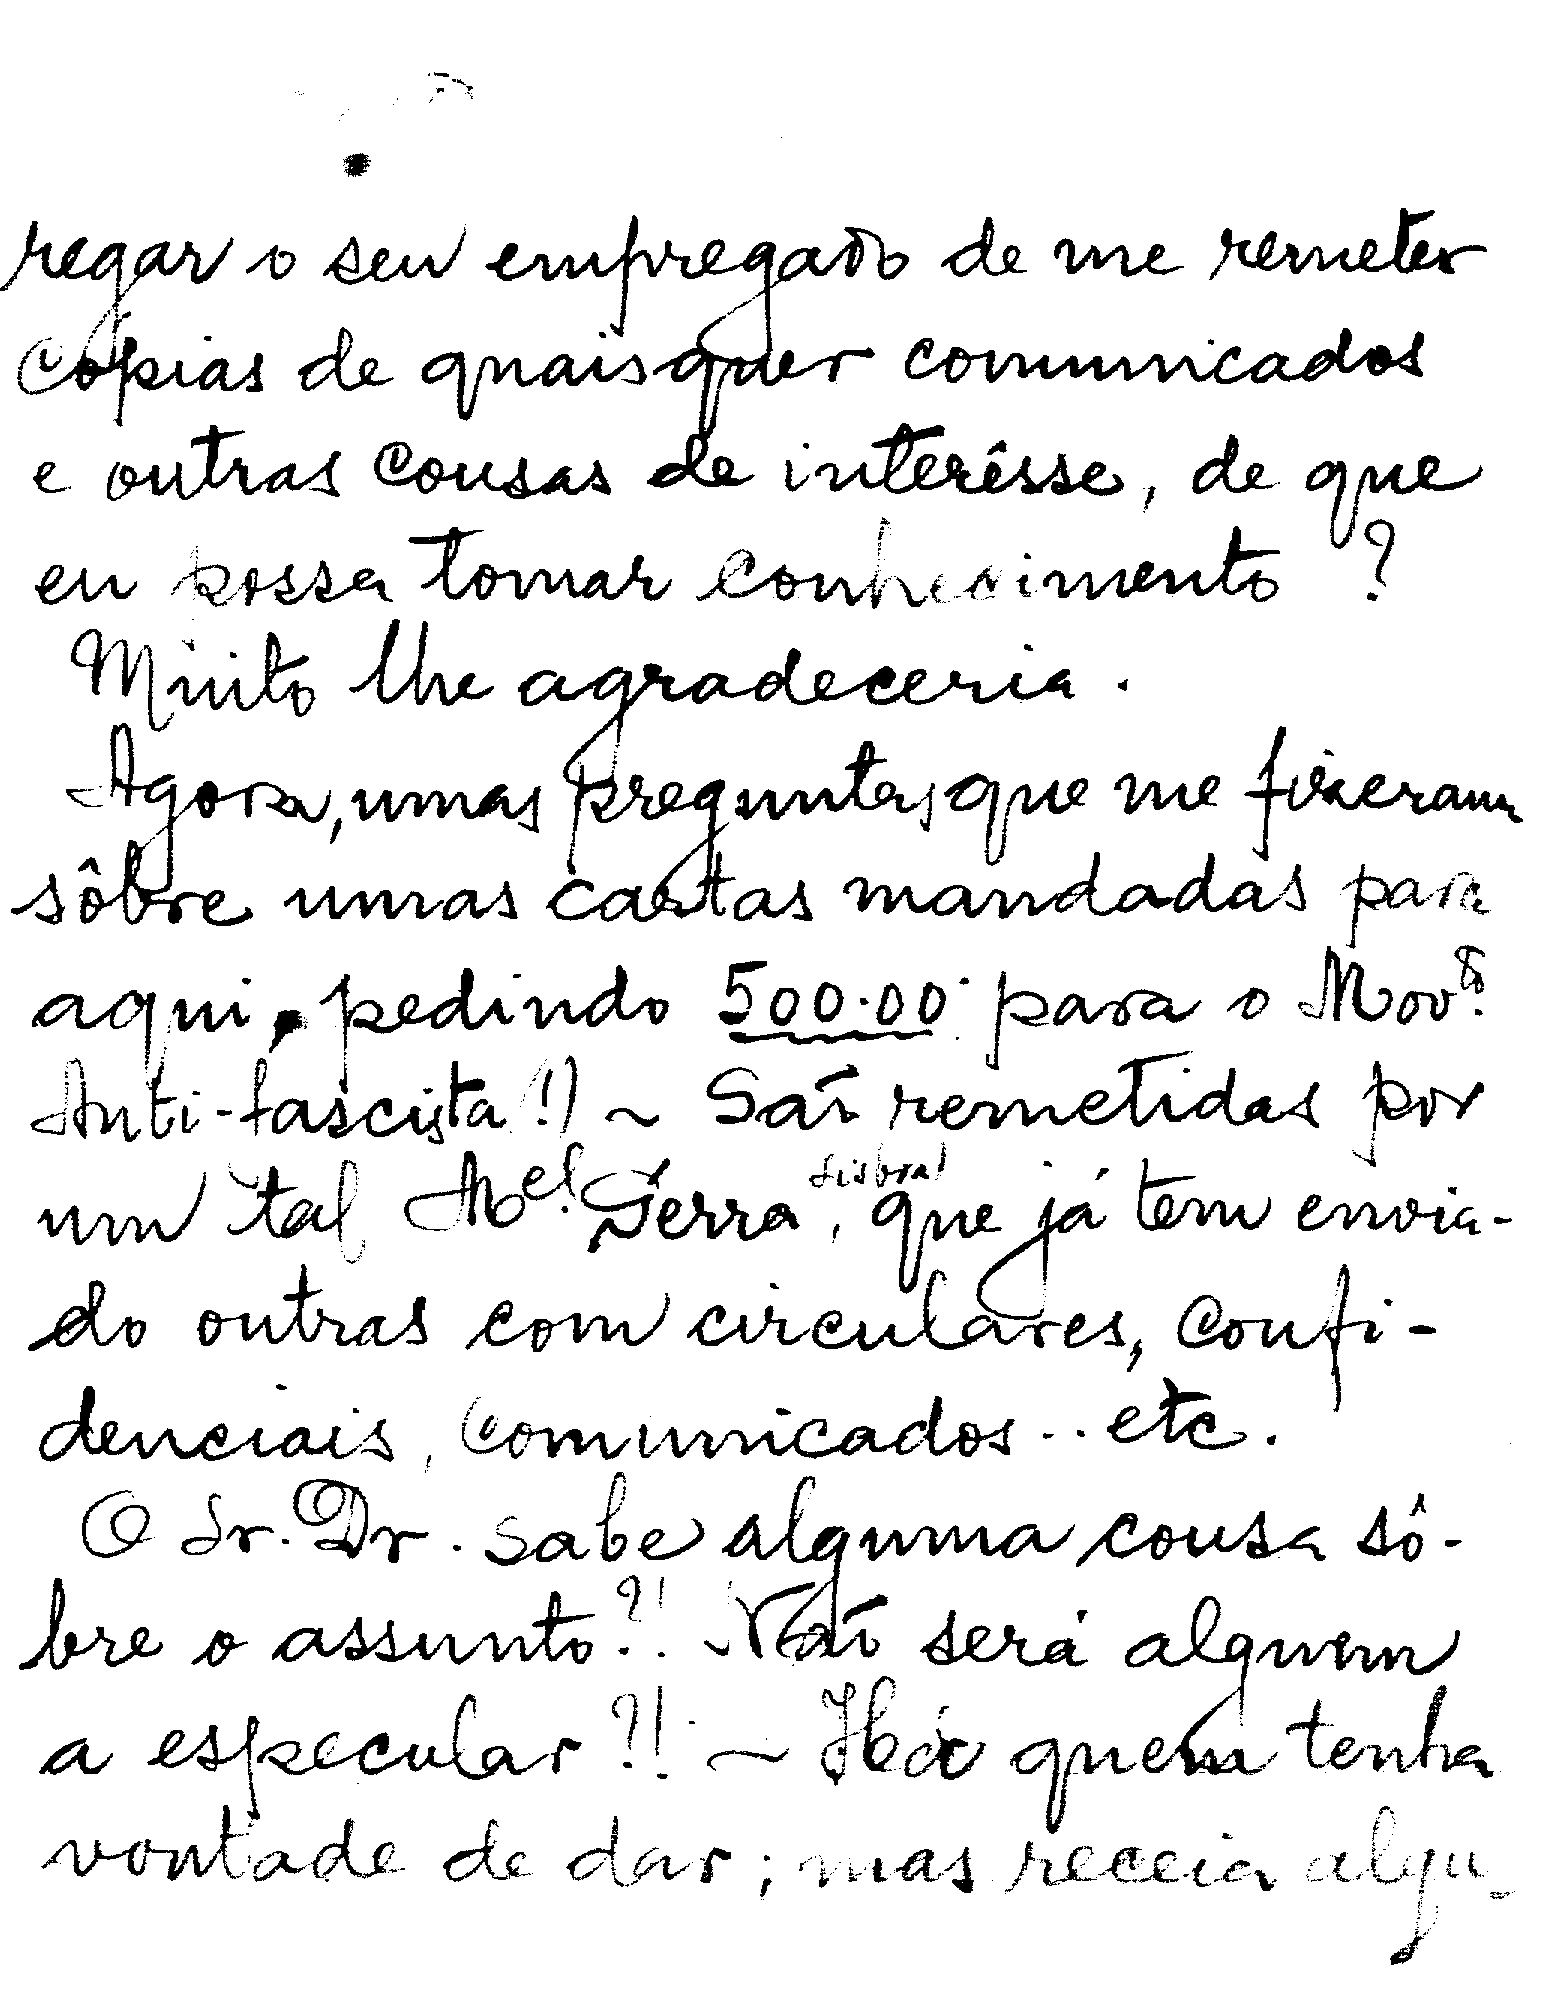 regar o seu empregado de me remeter
copias de quaisquer comunicados
e outras cousas de interêsse, de que
eu possa tomar conhecimento ?
Muito lhe agradeceria .
Agora, umas preguntas que me fizeram
sôbre umas cartas mandadas para
aqui, pedindo 500.00 para o Mov.to
Anti-fascista (!) ~ São remetidas por
um tal M.el Serra, Lisboa, que já tem envia-
do outras com circulares, confi-
denciais, comunicados .. etc.
O Sr. Dr. sabe alguma cousa sô-
bre o assunto ?! Não será alguem
a especular ?! ~ Há quem tenha
vontade de dar ; mas receia algu-